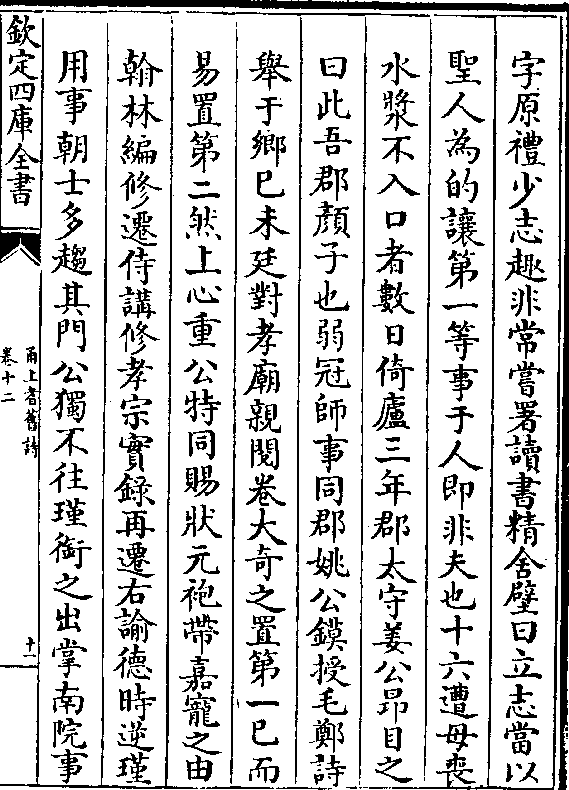 字原禮少志趣非常嘗署讀書精舍壁曰立志當以
聖人為的讓第一等事于人即非夫也十六遭母喪
水漿不入口者數日倚廬三年郡太守姜公昂目之
曰此吾郡顏子也弱冠師事同郡姚公鏌授毛鄭詩
舉于鄉巳未廷對孝廟親閱卷大奇之置第一巳而
易置第二然上心重公特同賜狀元袍帶嘉寵之由
翰林編修遷侍講修孝宗實錄再遷右諭德時逆瑾
用事朝士多趨其門公獨不往瑾銜之出掌南院事
欽定四庫全書
甬上耆舊詩
卷十二
十一